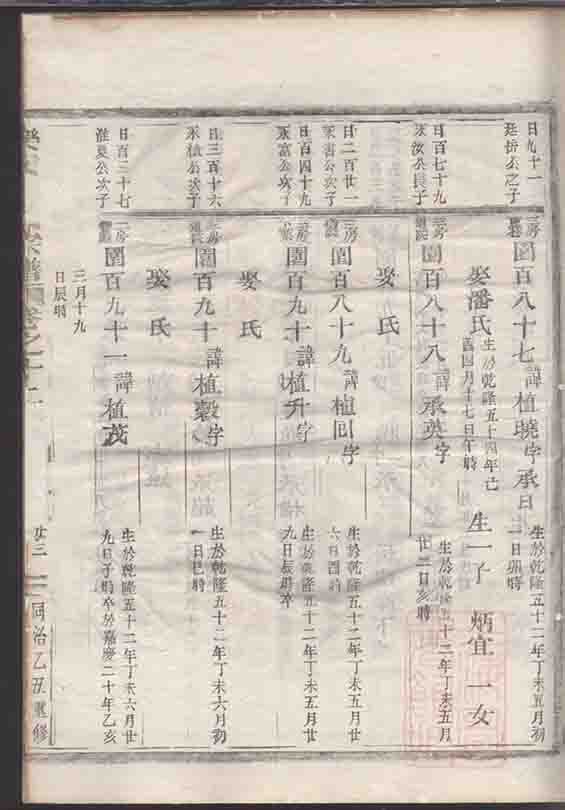 日九十一
廷僑公之子
三房
圖百八十七諱植曉字承日
生於乾隆五十二年丁未五月初
一日卯時
娶潘氏
生於乾隆五十四年己
酉四月十七日午時
生一子 炳宜 一女
日百七十九
永汝公長子
二房
圖百八十八諱承英字
生於乾隆五十二年丁未五月
廿二日亥時
娶 氏
日二百廿一
公次子
二房
圖百八十九諱植回字
生於乾隆五十二年丁未五月廿
六日酉時
日百四十九
永富公次子
三房
圖百九十諱植升字
生於乾隆五十二年丁未五月廿
九日辰時卒
娶 氏
日三百十六
永植公次子
二房
圖百九十諱植穀字
生於乾隆五十二年丁未六月初
一日巳時
娶 氏
日百三十七
淮夏公次子
一房
圖百九十一諱植茂
生於乾隆五十二年丁未六月廿
九日子時卒於嘉慶二十年乙亥
三月十九
日辰時
宗譜
卷之十二
廿三
同治乙丑重修